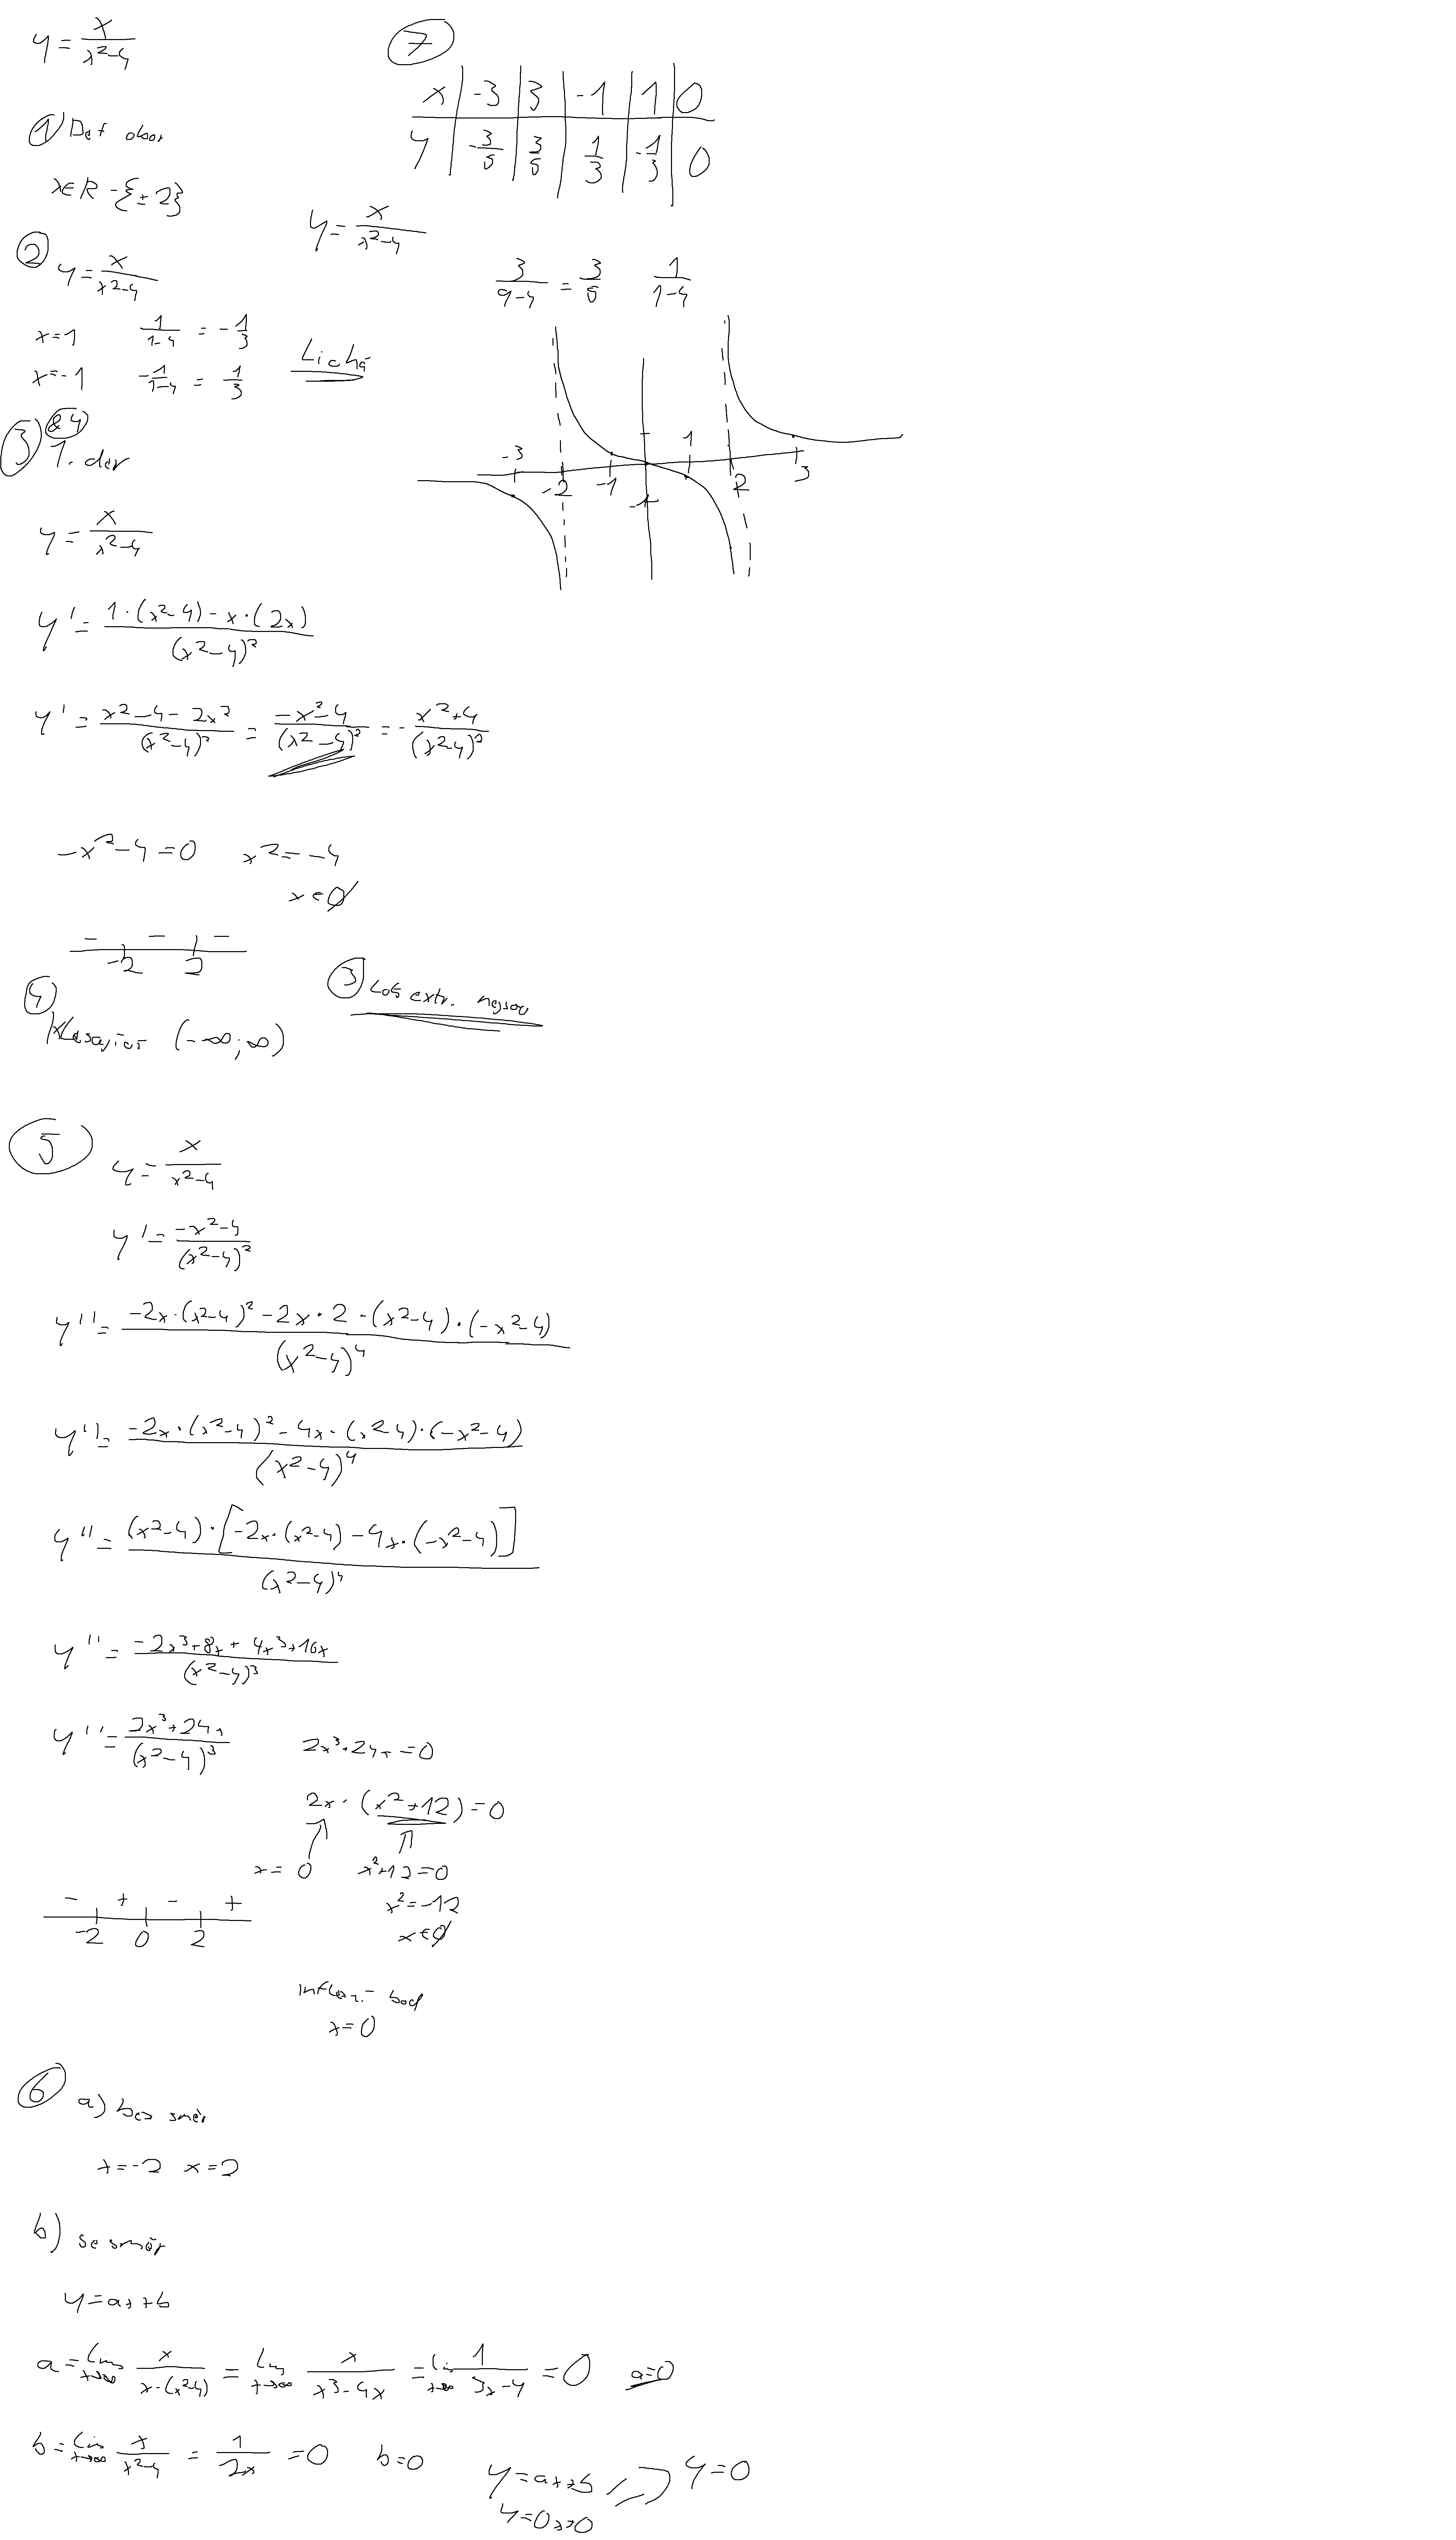 y = x/(x²-4)
① Def obor
x∈R -{±2}
② y = x/(x²-4)
x=1 1/(1-4) = -1/3
x=-1 -1/(1-4) = 1/3
Lichá
③ &4 1. der
y = x/(x²-4)
y' = (1·(x²-4) - x·(2x))/(x²-4)²
y' = (x²-4-2x²)/(x²-4)² = (-x²-4)/(x²-4)² = -(x²+4)/(x²-4)²
-x²-4=0 x²=-4
x∈∅
- - -
-2 2
③ Lok extr. nejsou
④
Klesající (-∞;∞)
⑤ y = x/(x²-4)
y' = (-x²-4)/(x²-4)²
y'' = (-2x·(x²-4)²-2x·2·(x²-4)·(-x²-4))/(x²-4)⁴
y'' = (-2x·(x²-4)²-4x·(x²-4)·(-x²-4))/(x²-4)⁴
y'' = ((x²-4)·[-2x·(x²-4)-4x·(-x²-4)])/(x²-4)⁴
y'' = (-2x³+8x+4x³+16x)/(x²-4)³
y'' = (2x³+24x)/(x²-4)³ 2x³+24x=0
2x·(x²+12)=0
x=0 x²+12=0
x²=-12
x∈∅
- + - +
-2 0 2
inflexní bod
x=0
⑥ a) bez směr
x=-2 x=2
b) se směr
y=ax+b
a = lim x→∞ x/(x·(x²-4)) = lim x→∞ x/(x³-4x) = lim x→∞ 1/(3x-4) = 0 a=0
b = lim x→∞ x/(x²-4) = 1/(2x) = 0 b=0
y=ax+b
y=0x+0
y=0
⑦
x -3 3 -1 1 0
y -3/5 3/5 1/3 -1/3 0
y = x/(x²-4)
3/(9-4) = 3/5 1/(1-4)
-3 -2 -1 1 2 3
-1